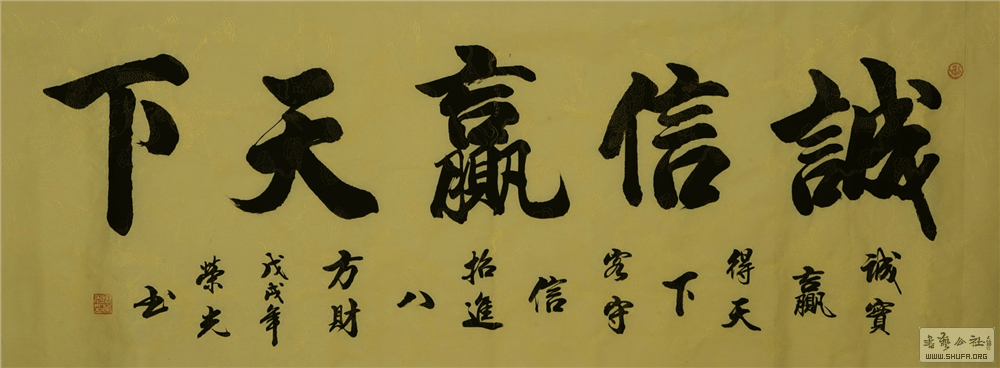 誠信贏天下
誠實
贏
得天
下
客守
信
招進
八
方財
戊戌年
榮光
书
书艺公社
WWW.SHUFA.ORG